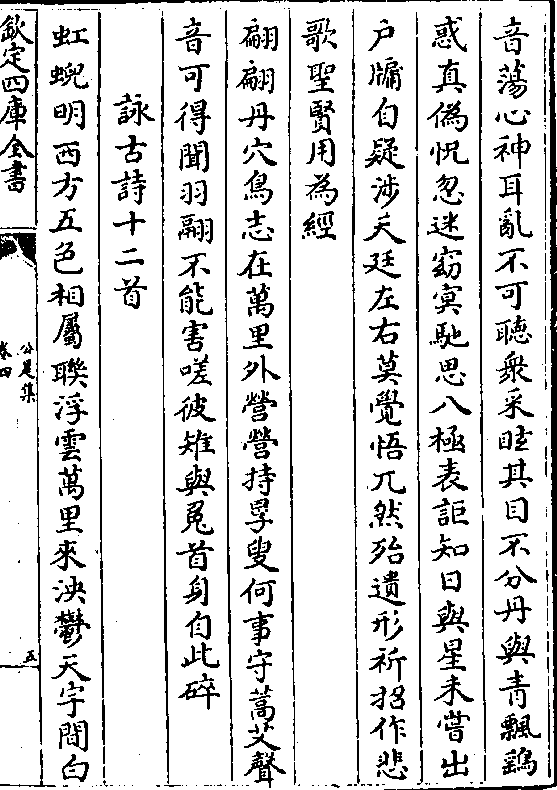 音蕩心神耳亂不可聽衆采眩其目不分丹與青飄鷂
惑真偽怳忽迷窈冥馳思八極表詎知日與星未嘗出
户牖自疑涉天廷左右莫覺悟兀然殆遺形祈招作悲
歌聖賢用為經
翩翩丹穴鳥志在萬里外營營持孚叟何事守蒿艾聲
音可得聞羽翮不能害嗟彼雉與兎首身自此碎
詠古詩十二首
虹蜺明西方五色相屬聯浮雲萬里來泱鬱天宇間白
欽定四庫全書
公是集
卷四
五